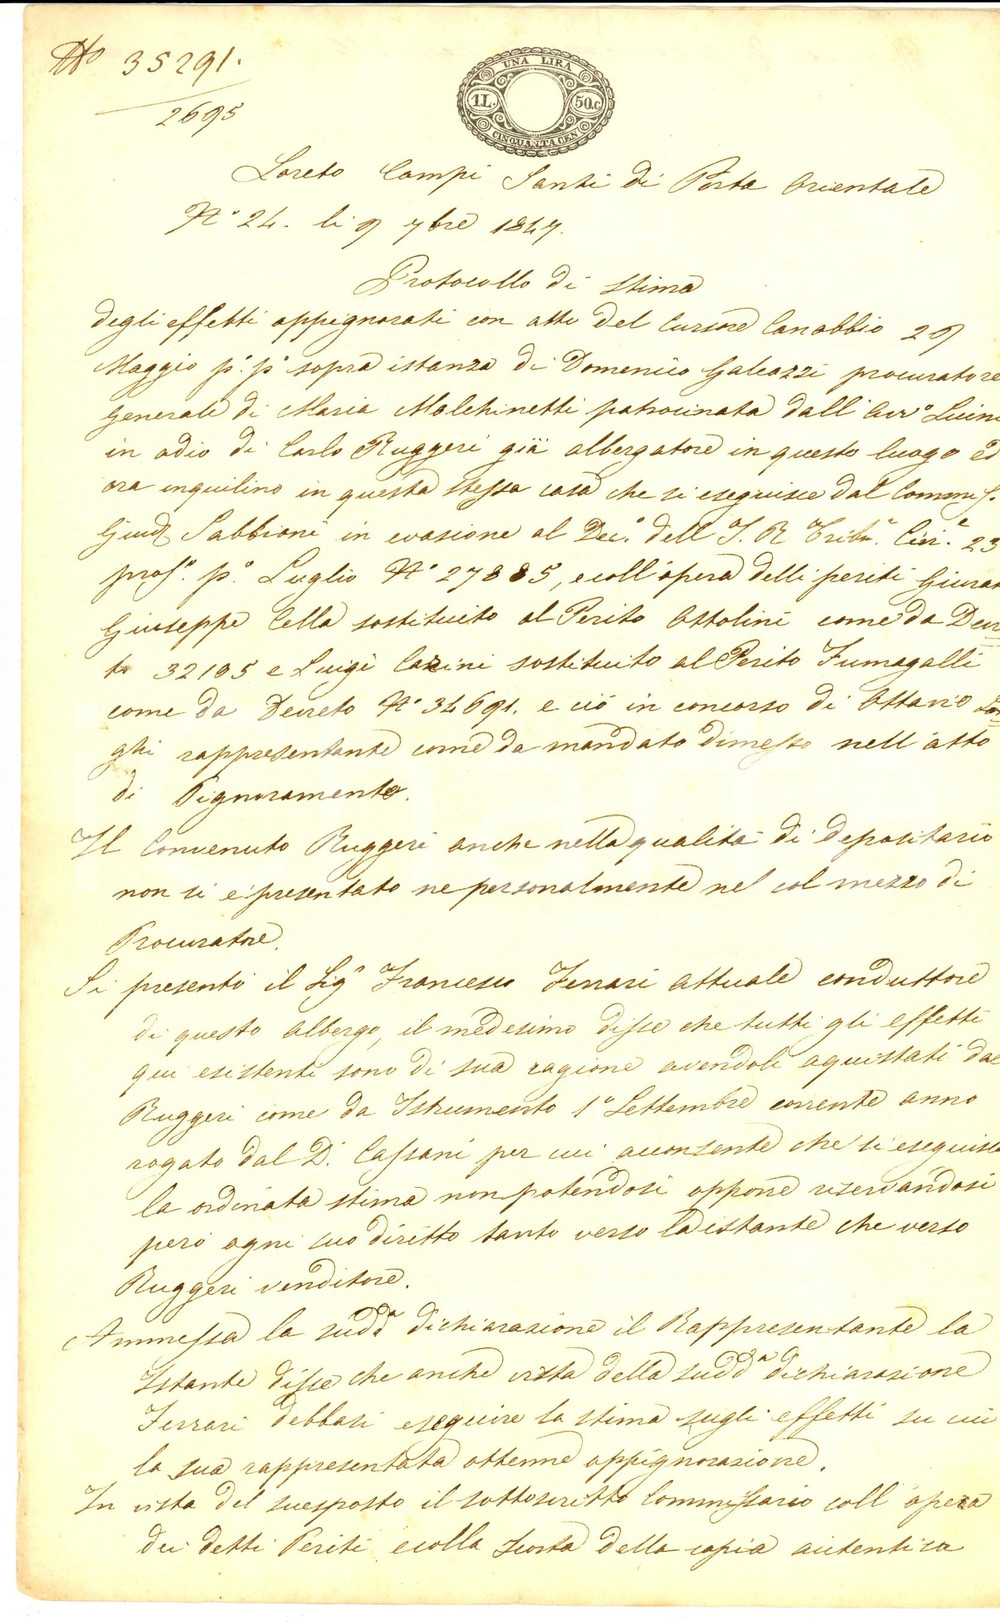 No 35291.
2695
UNA LIRA
1L. 50.c
CINQUANTA CEN
Loreto Campi Santi di Porta Orientale
N° 24. li 9 7bre 1847.
Protocollo di stima
degli effetti appignorati con atto del Cursore Canobbio 29
Maggio p.° p.° sopra istanza di Domenico Galeazzi procuratore
generale di Maria Malchinetti patrocinata dall' Avv.°
in odio di Carlo Ruggeri già albergatore in questo luogo ed
ora inquilino in questa stessa casa che si eseguisce dal Commiss.
Giud. Sabbioni in evasione al Dec.° dell' I. R. Trib.e Civ.e 23
pros.° p.° Luglio N° 27885, e coll' opera delli periti
Giuseppe Cella sostituito al Perito Ottolini come da Decre
to 32195 e Luigi Cazini sostituito al Perito Fumagalli
come da Decreto N° 34691. e ciò in concorso di Ottavio Lon
ghi rappresentante come da mandato dimesso nell' atto
di Pignoramento.
Il Convenuto Ruggeri anche nella qualità di depositario
non si è presentato ne personalmente nel col mezzo di
Procuratore.
Si presentò il Sig.r Francesco Ferrari attuale conduttore
di questo albergo, il medesimo disse che tutti gli effetti
qui esistenti sono di sua ragione avendoli aquistati dal
Ruggeri come da Istrumento 1° Settembre corrente anno
rogato dal D.r Cassani per cui acconsente che si eseguisca
la ordinata stima non potendosi opporre riservandosi
però ogni suo diritto tanto verso la istante che verso
Ruggeri venditore.
Ammessa la sudd.a dichiarazione il Rappresentante la
Istante disse che anche vista della sudd.a dichiarazione
Ferrari debbasi eseguire la stima sugli effetti su cui
la sua rappresentata ottenne appignorazione.
In vista del suesposto il sottoscritto Commissario coll' opera
dei detti Periti e colla scorta della copia autentica